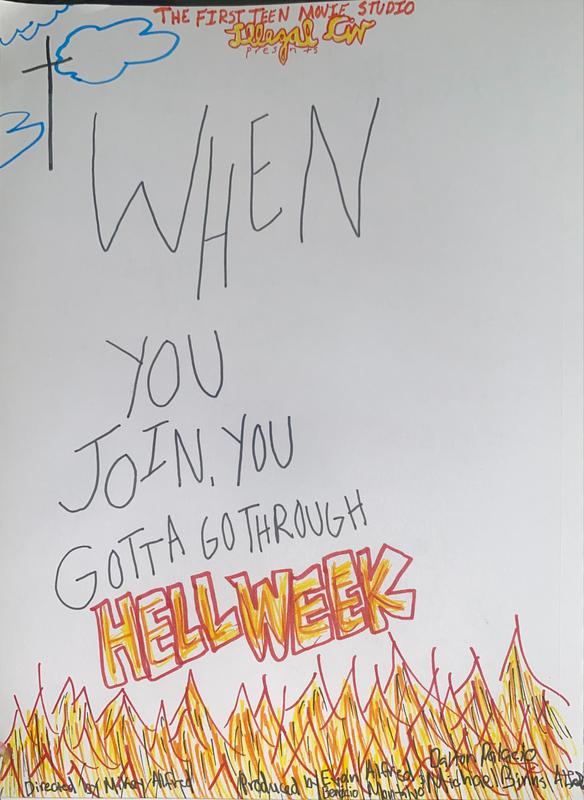 THE FIRST TEEN MOVIE STUDIO
Illegal Civ
presents
WHEN
YOU
JOIN, YOU
GOTTA GO THROUGH
HELLWEEK
Dalton
Directed by Mikey Alfred
Produced by Evan Alfred & Michael Binns
Montano